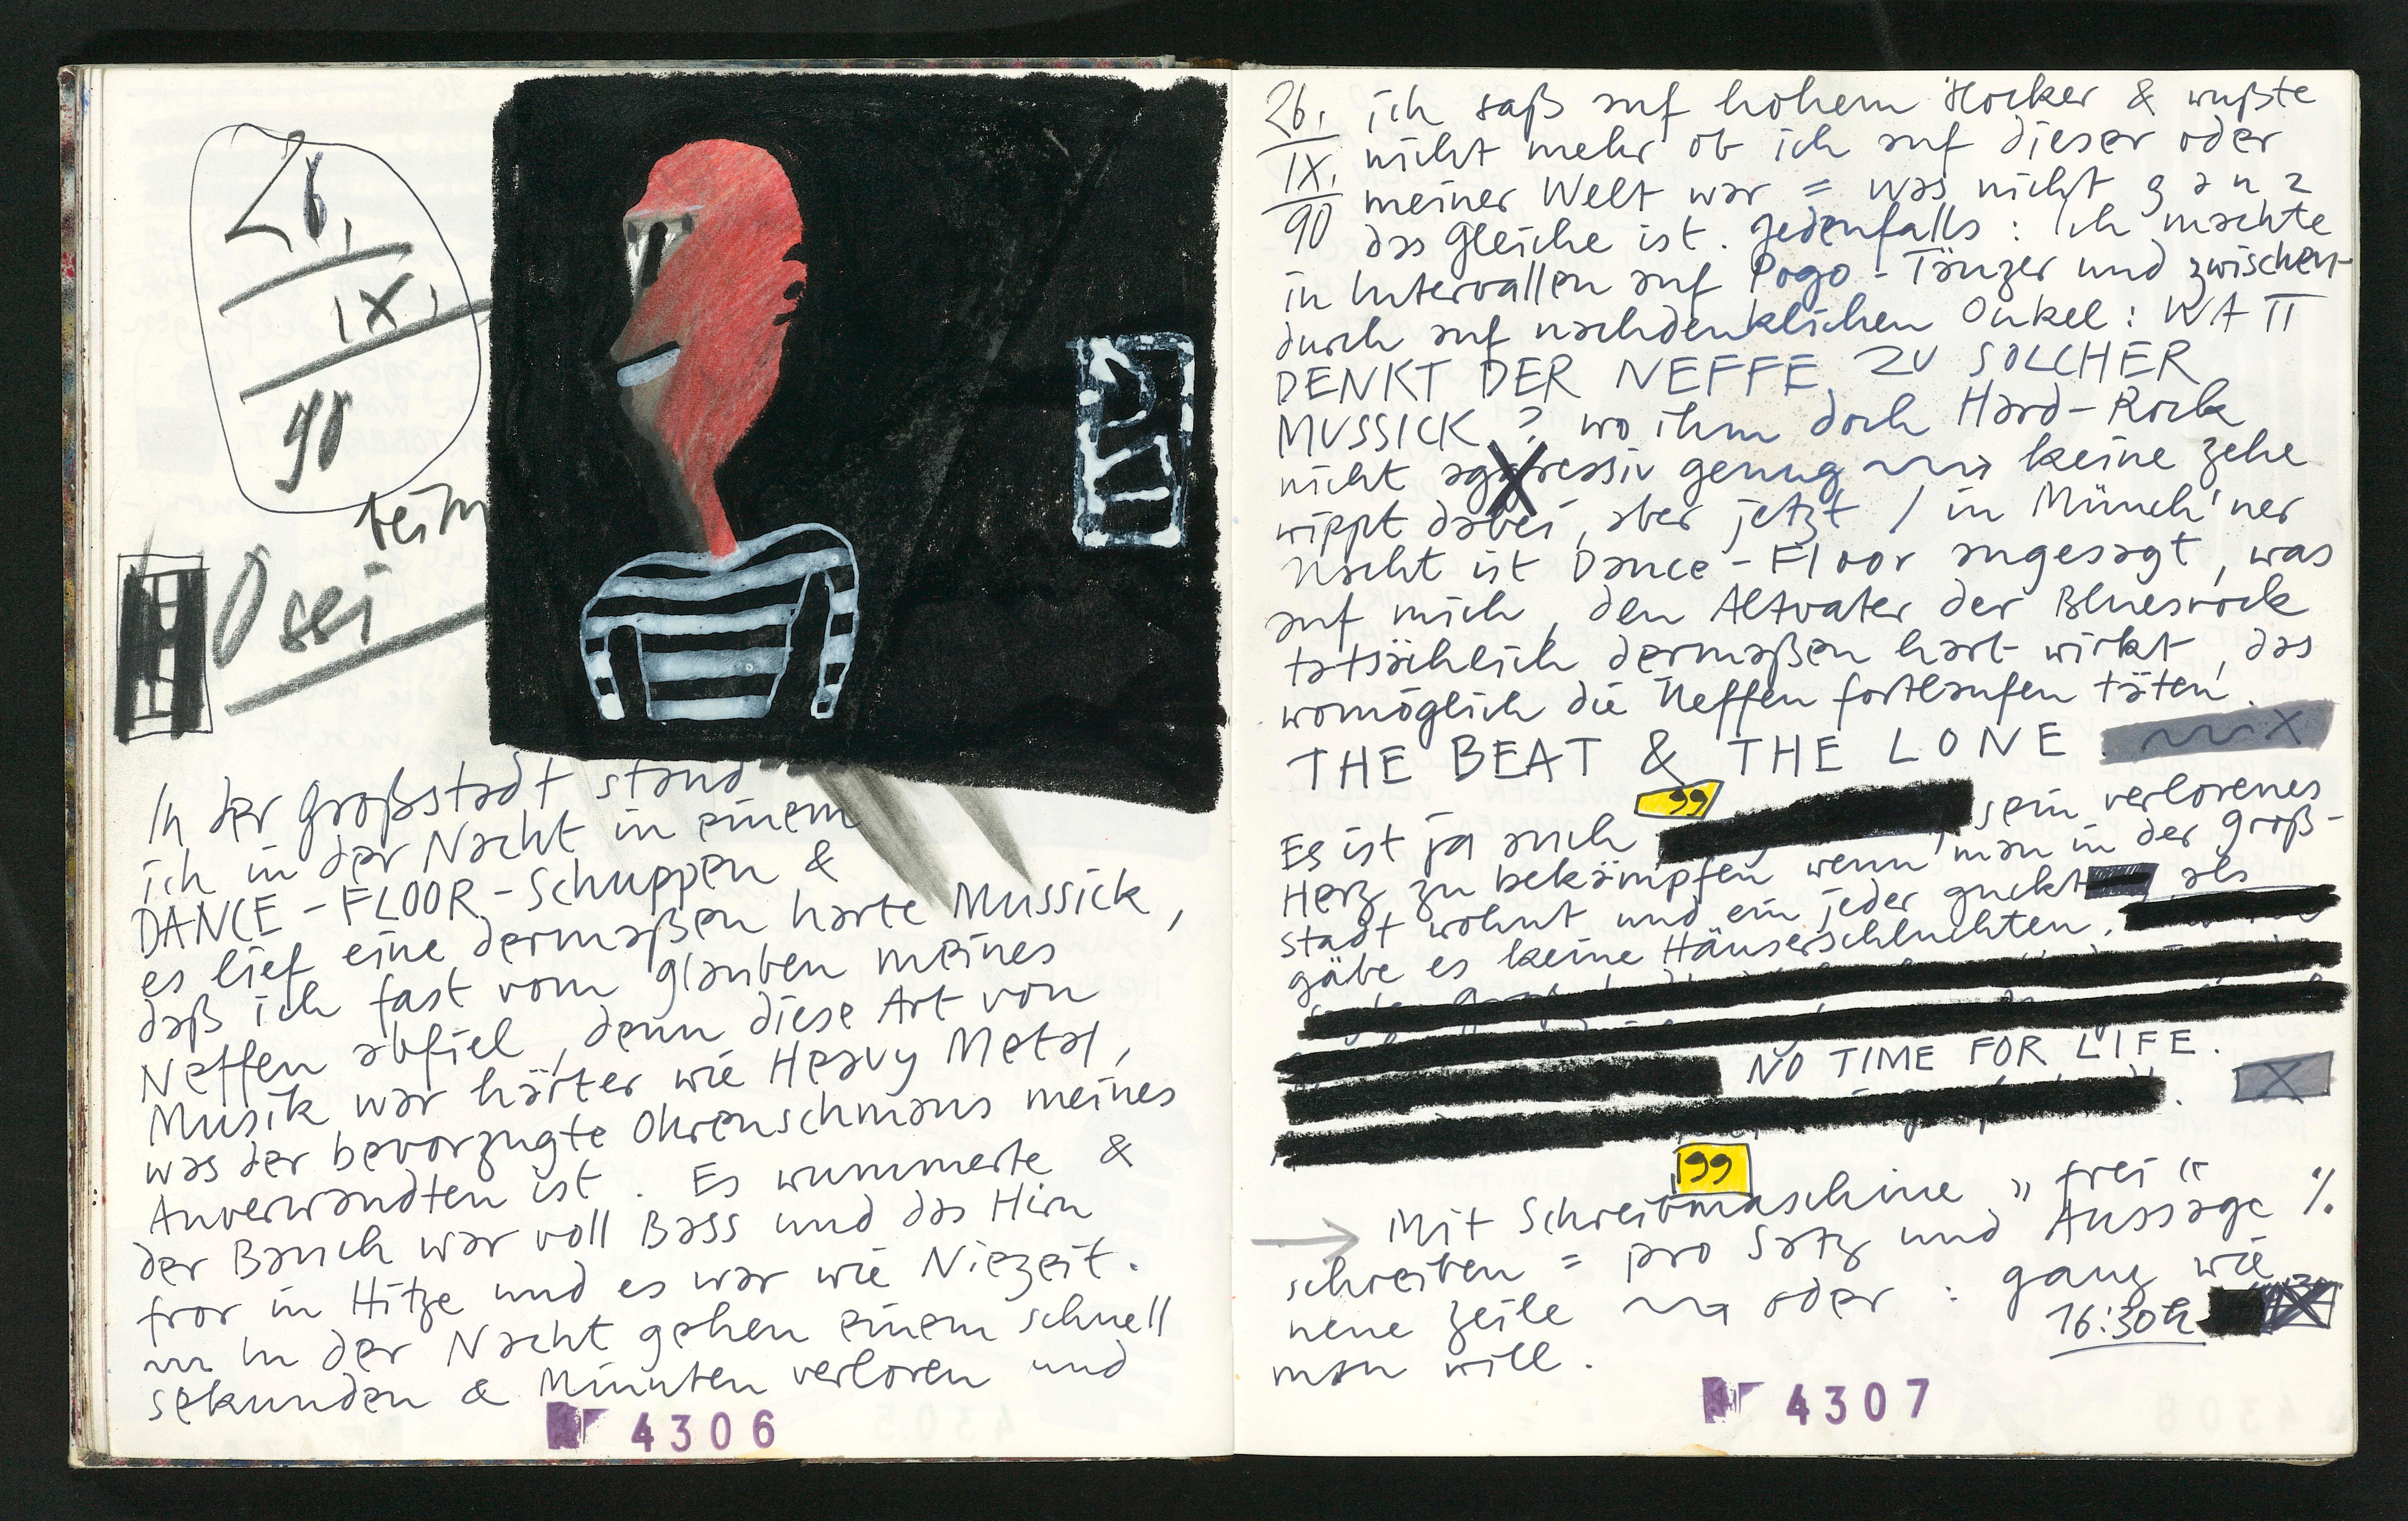 26.
IX.
90
beim
Ossi
In der Großstadt stand
ich in der Nacht in einem
DANCE-FLOOR-Schuppen &
es lief eine dermaßen harte Mussick,
daß ich fast vom Glauben meines
Neffen abfiel, denn diese Art von
Musik war härter wie Heavy Metal,
was der bevorzugte Ohrenschmaus meines
Anverwandten ist. Es wummerte &
der Bauch war voll Bass und das Hirn
fror in Hitze und es war wie Niezeit.
In der Nacht gehen einem schnell
sekunden & Minuten verloren und
№ 4306
26.
IX.
90
ich saß auf hohem Hocker & wußte
nicht mehr ob ich auf dieser oder
meiner Welt war = was nicht ganz
das Gleiche ist. Jedenfalls: Ich machte
in Intervallen auf Pogo-Tänzer und zwischen-
durch auf nachdenklichen Onkel: WATT
DENKT DER NEFFE ZU SOLCHER
MUSSICK? wo ihm doch Hard-Rock
nicht aggressiv genug keine Zehe
wippt dabei, aber jetzt / in Münch'ner
Nacht ist Dance-Floor angesagt, was
auf mich, den Altvater der Bluesrock
tatsächlich dermaßen hart wirkt, das
womöglich die Neffen fortlaufen täten.
THE BEAT & THE LONE
X
99
Es ist ja auch sein verlorenes
Herz zu bekämpfen wenn man in der Groß-
stadt wohnt und ein jeder guckt als
gäbe es keine Häuserschluchten.
NO TIME FOR LIFE.
X
99
→ Mit Schreibmaschine „frei“
schreiben = pro Satz und Aussage %
neue Zeile oder: ganz wie
man will.
16:30h
№ 4307